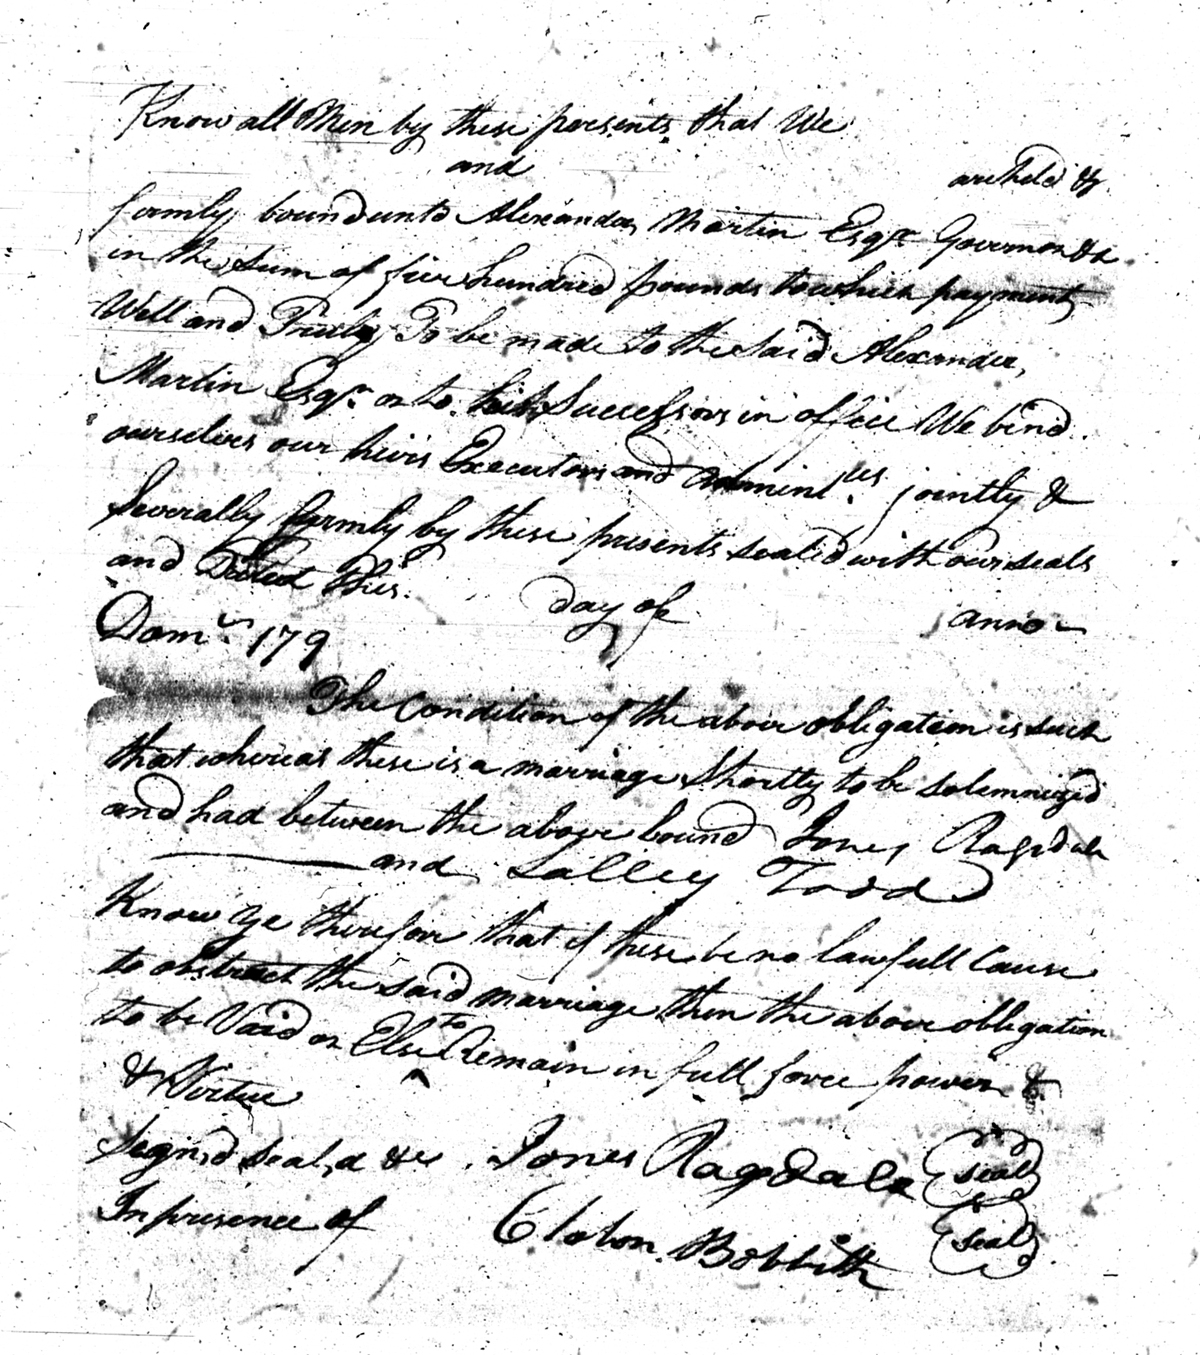 Know all Men by these presents that We
and are held &
firmly bound unto Alexander Martin Esqr Governor &c
in the Sum of five hundred pounds to which payment
Well and Truly To be made to the Said Alexander
Martin Esqr. or to his Successors in office We bind
ourselves our heirs Executors and Adminl.trs jointly &
Severally firmly by these presents sealed with our seals
and Dated this day of anno
Dom. 179
The Condition of the above obligation is such
that whereas there is a marriage Shortly to be solemnized
and had between the above bound Jones Ragsdale
and Salley Todd
Know Ye therefore that if there be no lawfull Cause
to obstruct the said marriage then the above obligation
to be Void or Else to Remain in full force power &
& Virtue
Segn,d Seal,d &c Jones Ragsdale (seal)
In presence of Claton Bobbitt (seal)